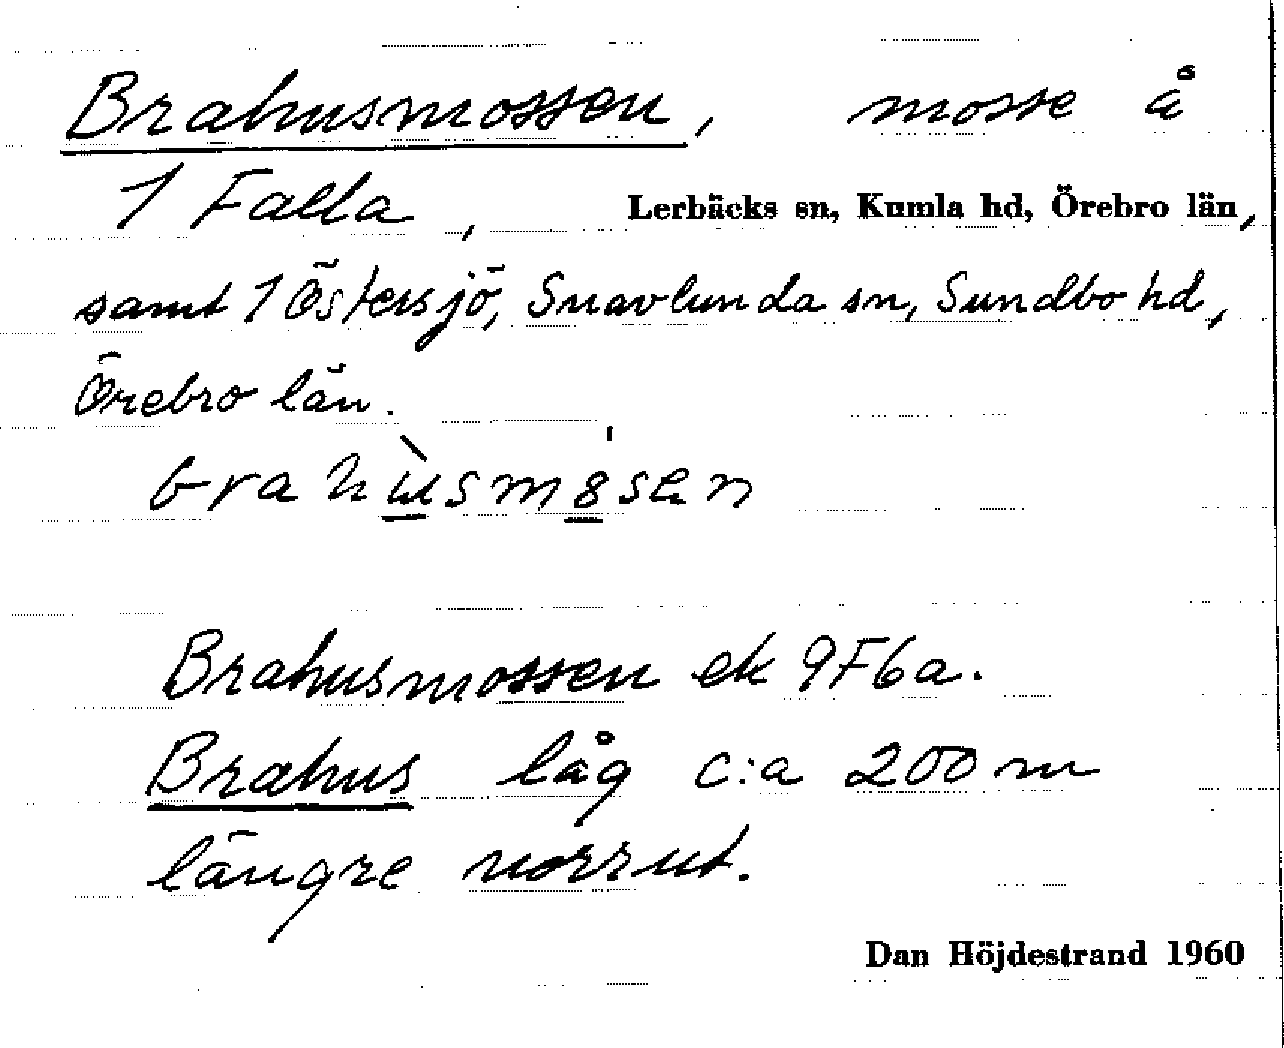 Brahusmossen, mosse å
1 Falla, Lerbäcks sn, Kumla hd, Örebro län,
samt 1 Östersjö, Snavlunda sn, Sundbo hd,
Örebro län.
Brahusmossen ek 9F6a.
Brahus låg c:a 200 m
längre norrut.
Dan Höjdestrand 1960